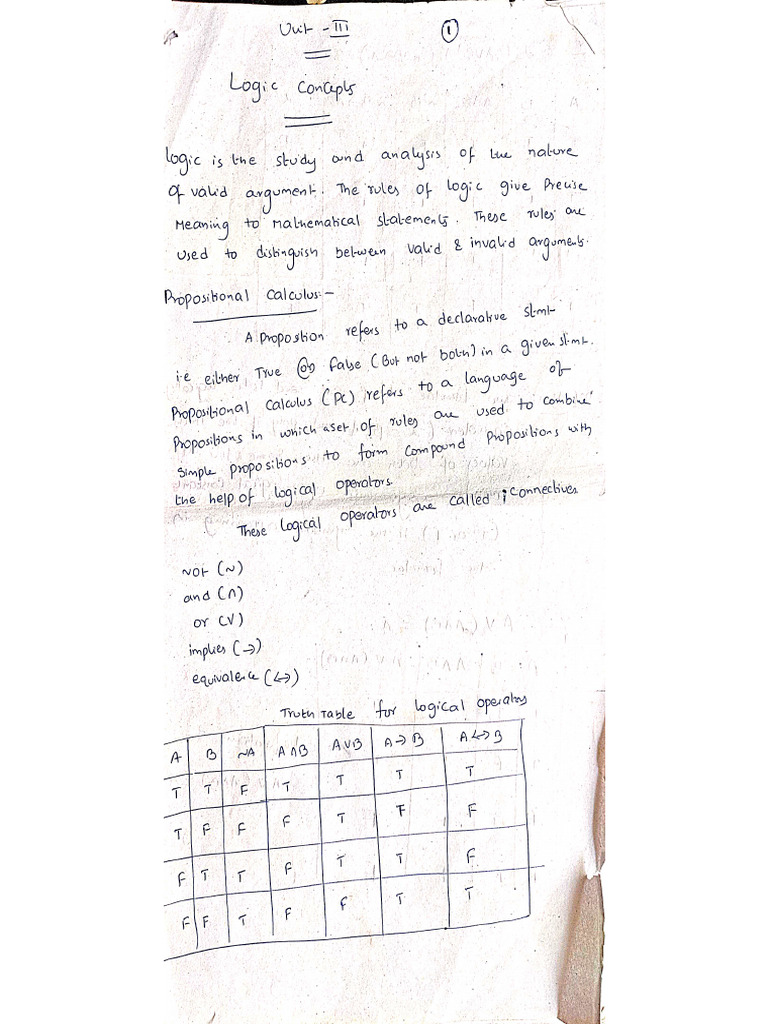 Unit - III
1
Logic Concepts
Logic is the study and analysis of the nature
of valid argument. The rules of logic give Precise
Meaning to Mathematical statements. These rules are
used to distinguish between valid & invalid arguments.
Propositional Calculus:-
A Proposition refers to a declarative stmt
i.e either True (or) False (But not both) in a given stmt.
Propositional Calculus (PC) refers to a language of
Propositions in which a set of rules are used to combine
simple propositions to form compound Propositions with
the help of logical operators.
These logical operators are called connectives
not (~)
and (∧)
or (∨)
implies (→)
equivalence (↔)
Truth Table for logical operators
A B ~A A∧B A∨B A→B A↔B
T T F T T T T
T F F F T F F
F T T F T T F
F F T F F T T